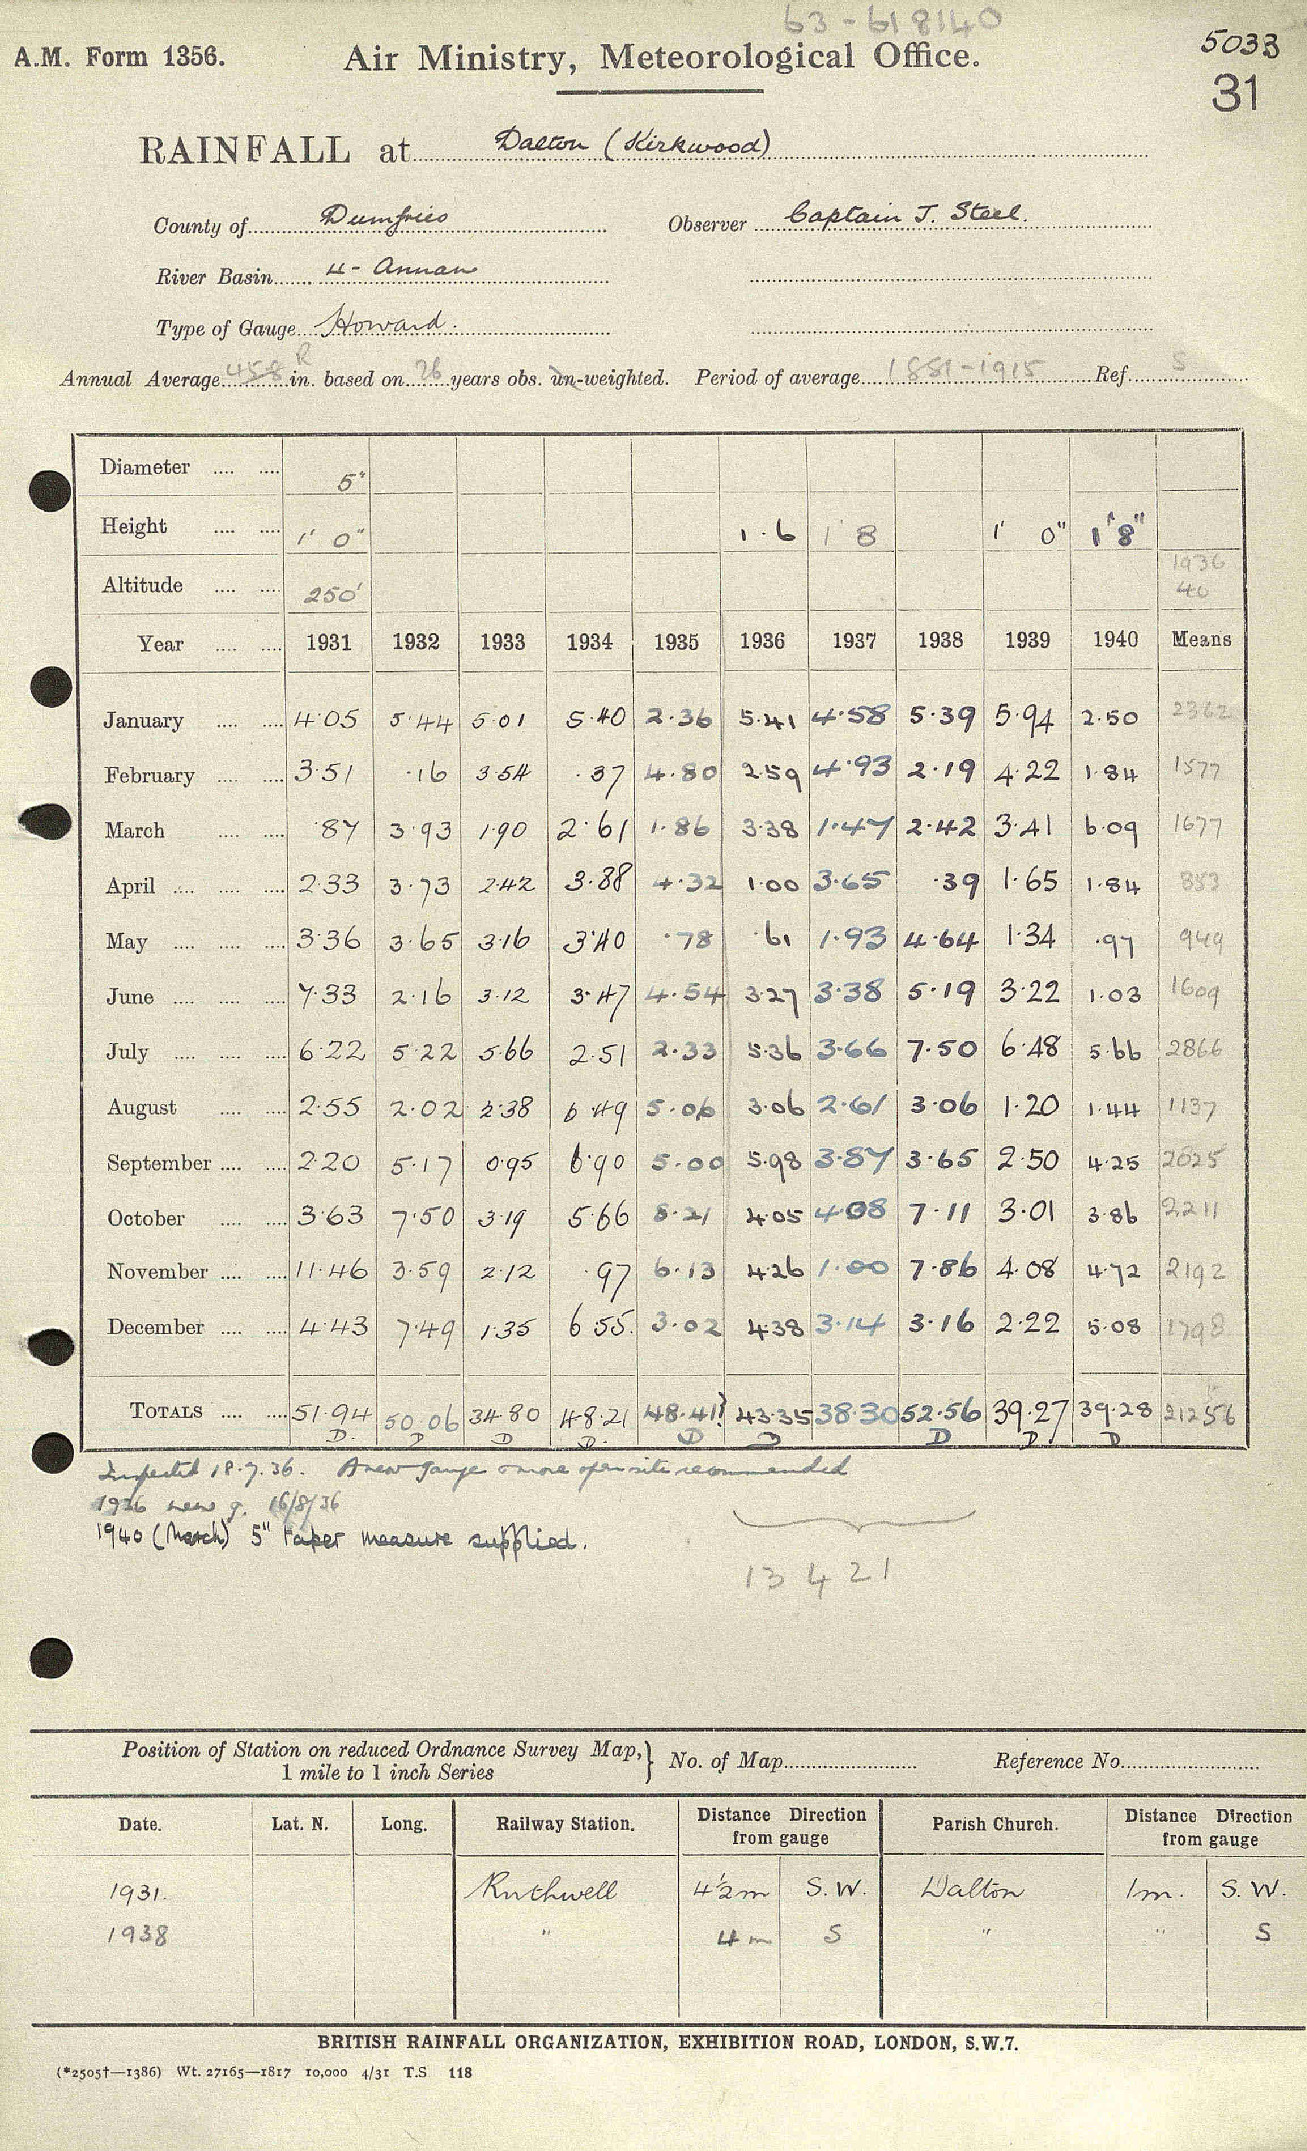 63-618140
A.M. Form 1356. Air Ministry, Meteorological Office. 5033
31
RAINFALL at Dalton (Kirkwood)
County of Dumfries Observer Captain J. Steel.
River Basin 4- Annan
Type of Gauge Howard.
Annual Average 458 R in. based on 26 years obs. un-weighted. Period of average 1881-1915 Ref. S
Diameter 5"
Height 1' 0" 1·6 1' 8 1' 0" 1' 8"
Altitude 250' 1936 40
Year 1931 1932 1933 1934 1935 1936 1937 1938 1939 1940 Means
January 4·05 5·44 5·01 5·40 2·36 5·41 4·58 5·39 5·94 2·50 2362
February 3·51 ·16 3·54 ·37 4·80 2·59 4·93 2·19 4·22 1·84 1577
March ·87 3·93 1·90 2·61 1·86 3·38 1·47 2·42 3·41 6·09 1677
April 2·33 3·73 2·42 3·88 4·32 1·00 3·65 ·39 1·65 1·84 853
May 3·36 3·65 3·16 3·40 ·78 ·61 1·93 4·64 1·34 ·97 949
June 7·33 2·16 3·12 3·47 4·54 3·27 3·38 5·19 3·22 1·03 1609
July 6·22 5·22 5·66 2·51 2·33 5·36 3·66 7·50 6·48 5·66 2866
August 2·55 2·02 2·38 6·49 5·06 3·06 2·61 3·06 1·20 1·44 1137
September 2·20 5·17 0·95 6·90 5·00 5·98 3·87 3·65 2·50 4·25 2025
October 3·63 7·50 3·19 5·66 8·21 4·05 4·08 7·11 3·01 3·86 2211
November 11·46 3·59 2·12 ·97 6·13 4·26 1·00 7·86 4·08 4·72 2192
December 4·43 7·49 1·35 6·55 3·02 4·38 3·14 3·16 2·22 5·08 1798
TOTALS 51·94 50·06 34·80 48·21 48·41? 43·35 38·30 52·56 39·27 39·28 21256
D. D D D. D D D D. D
Inspected 18.7.36. A new gauge & more open site recommended
1936 new g. 16/8/36
1940 (March) 5" taper measure supplied.
13421
Position of Station on reduced Ordnance Survey Map, 1 mile to 1 inch Series } No. of Map Reference No.
Date. Lat. N. Long. Railway Station. Distance Direction from gauge Parish Church. Distance Direction from gauge
1931. Ruthwell 4½m S.W. Dalton 1m. S.W.
1938 " 4 m S " " S
BRITISH RAINFALL ORGANIZATION, EXHIBITION ROAD, LONDON, S.W.7.
(*2505†—1386) Wt. 27165—1817 10,000 4/31 T.S 118